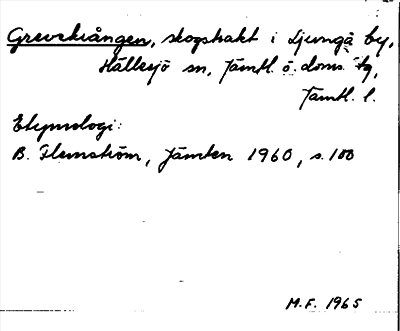 Grevekrången, skogstrakt i Ljungå by,
Hällesjö sn, Jämtl. ö. doms. tg,
Jämtl. l.
Etymologi:
B. Flemström, Jämten 1960, s. 100
M.F. 1965